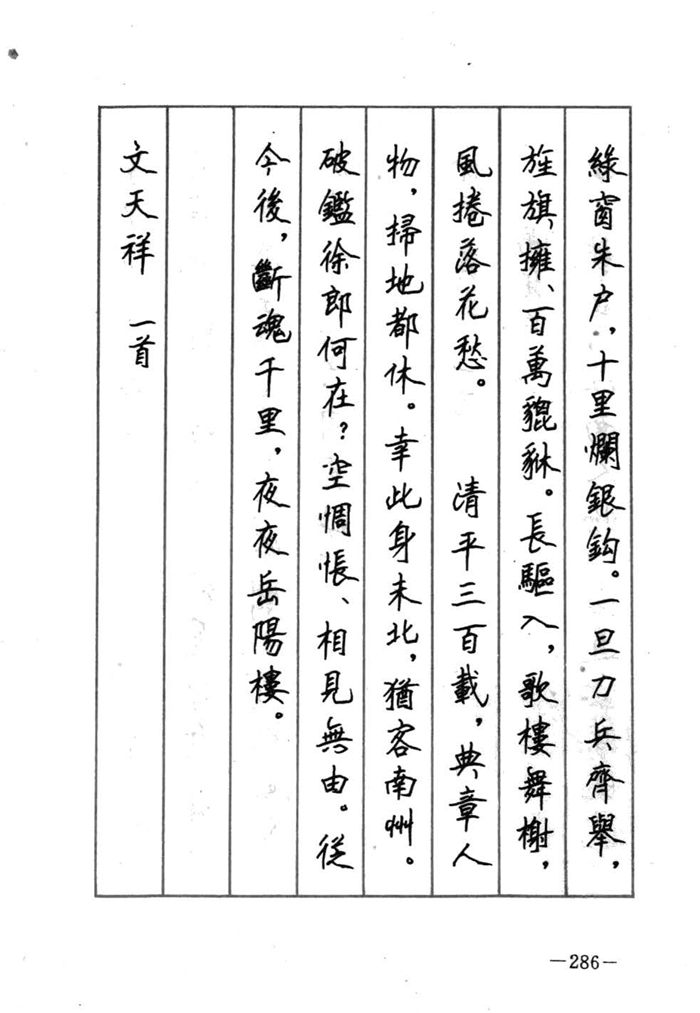 綠窗朱户，十里爛銀鈎。一旦刀兵齊舉，
旌旗擁、百萬貔貅。長驅入，歌樓舞榭，
風捲落花愁。　清平三百載，典章人
物，掃地都休。幸此身未北，猶客南州。
破鑑徐郎何在？空惆悵、相見無由。從
今後，斷魂千里，夜夜岳陽樓。
文天祥　一首
—286—